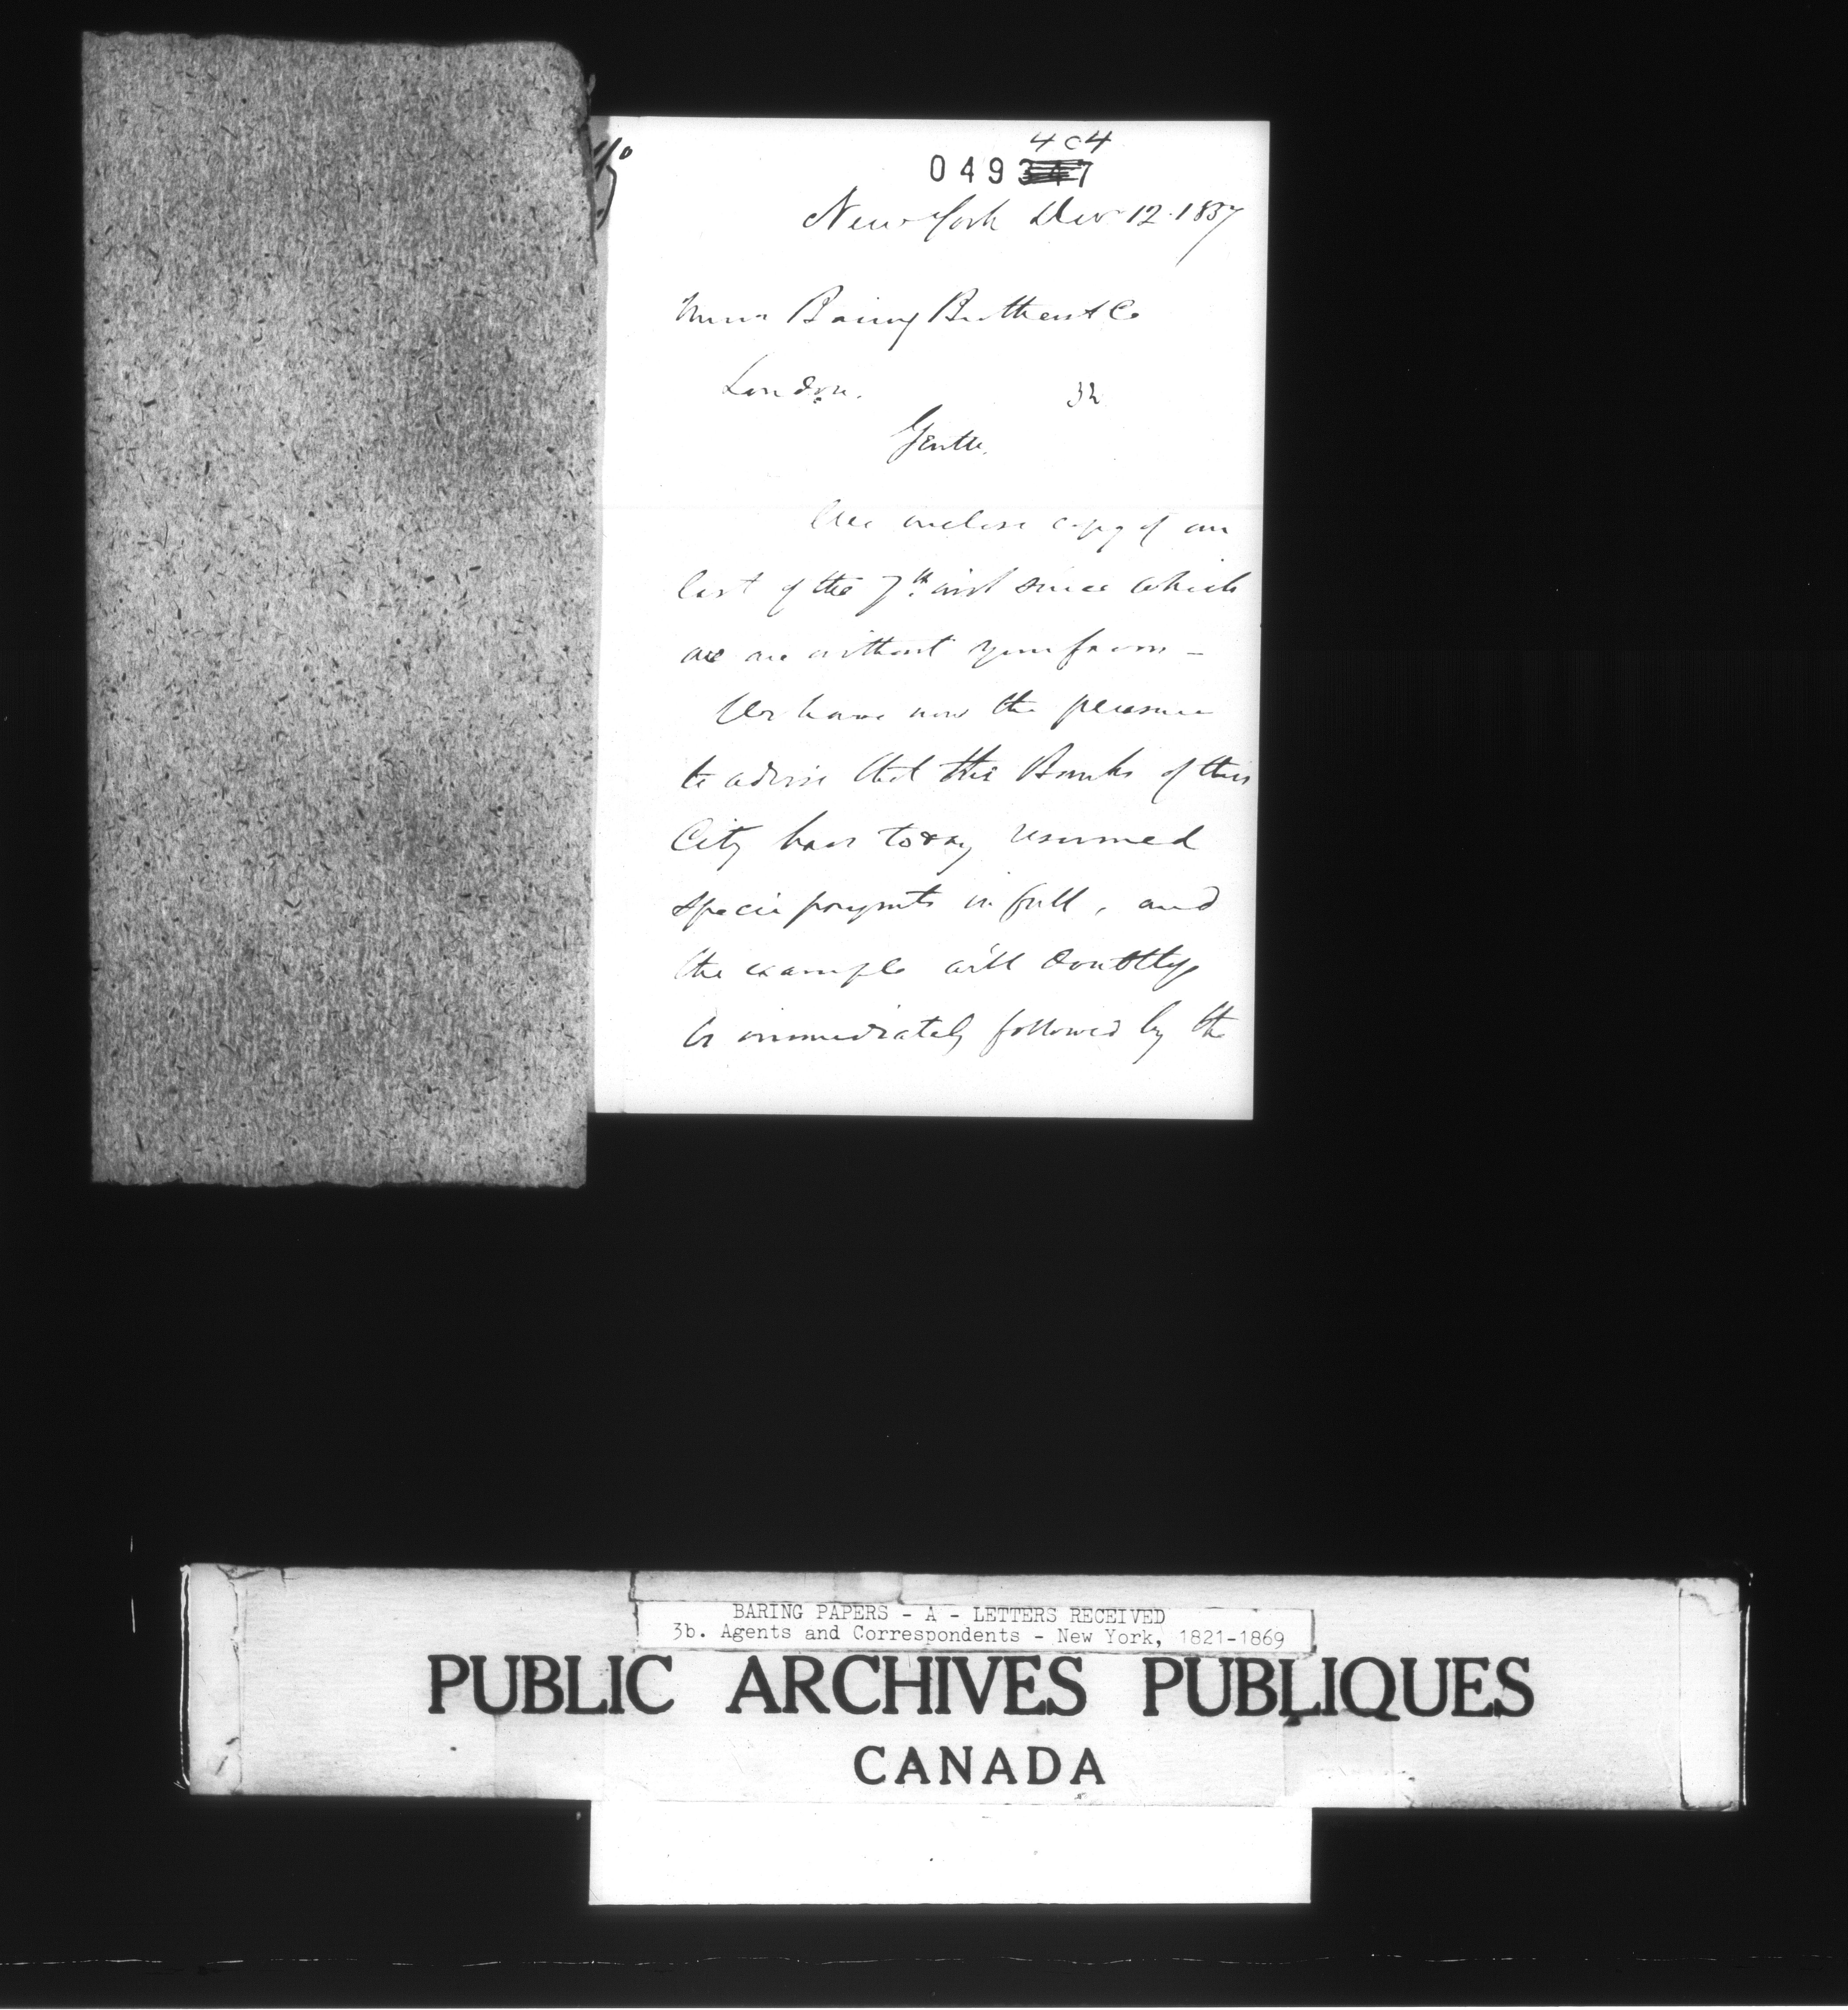 404
049347
New York Decr 12. 1857
Messrs Baring Brothers & Co
London.
32
Gentn.
We enclose copy of our
last of the 7th. inst since which
we are without your favors -
We have now the pleasure
to advise that the Banks of this
City have today resumed
specie paymts in full, and
the example will doubtless
be immediately followed by the
BARING PAPERS - A - LETTERS RECEIVED
3b. Agents and Correspondents - New York, 1821-1869
PUBLIC ARCHIVES PUBLIQUES
CANADA